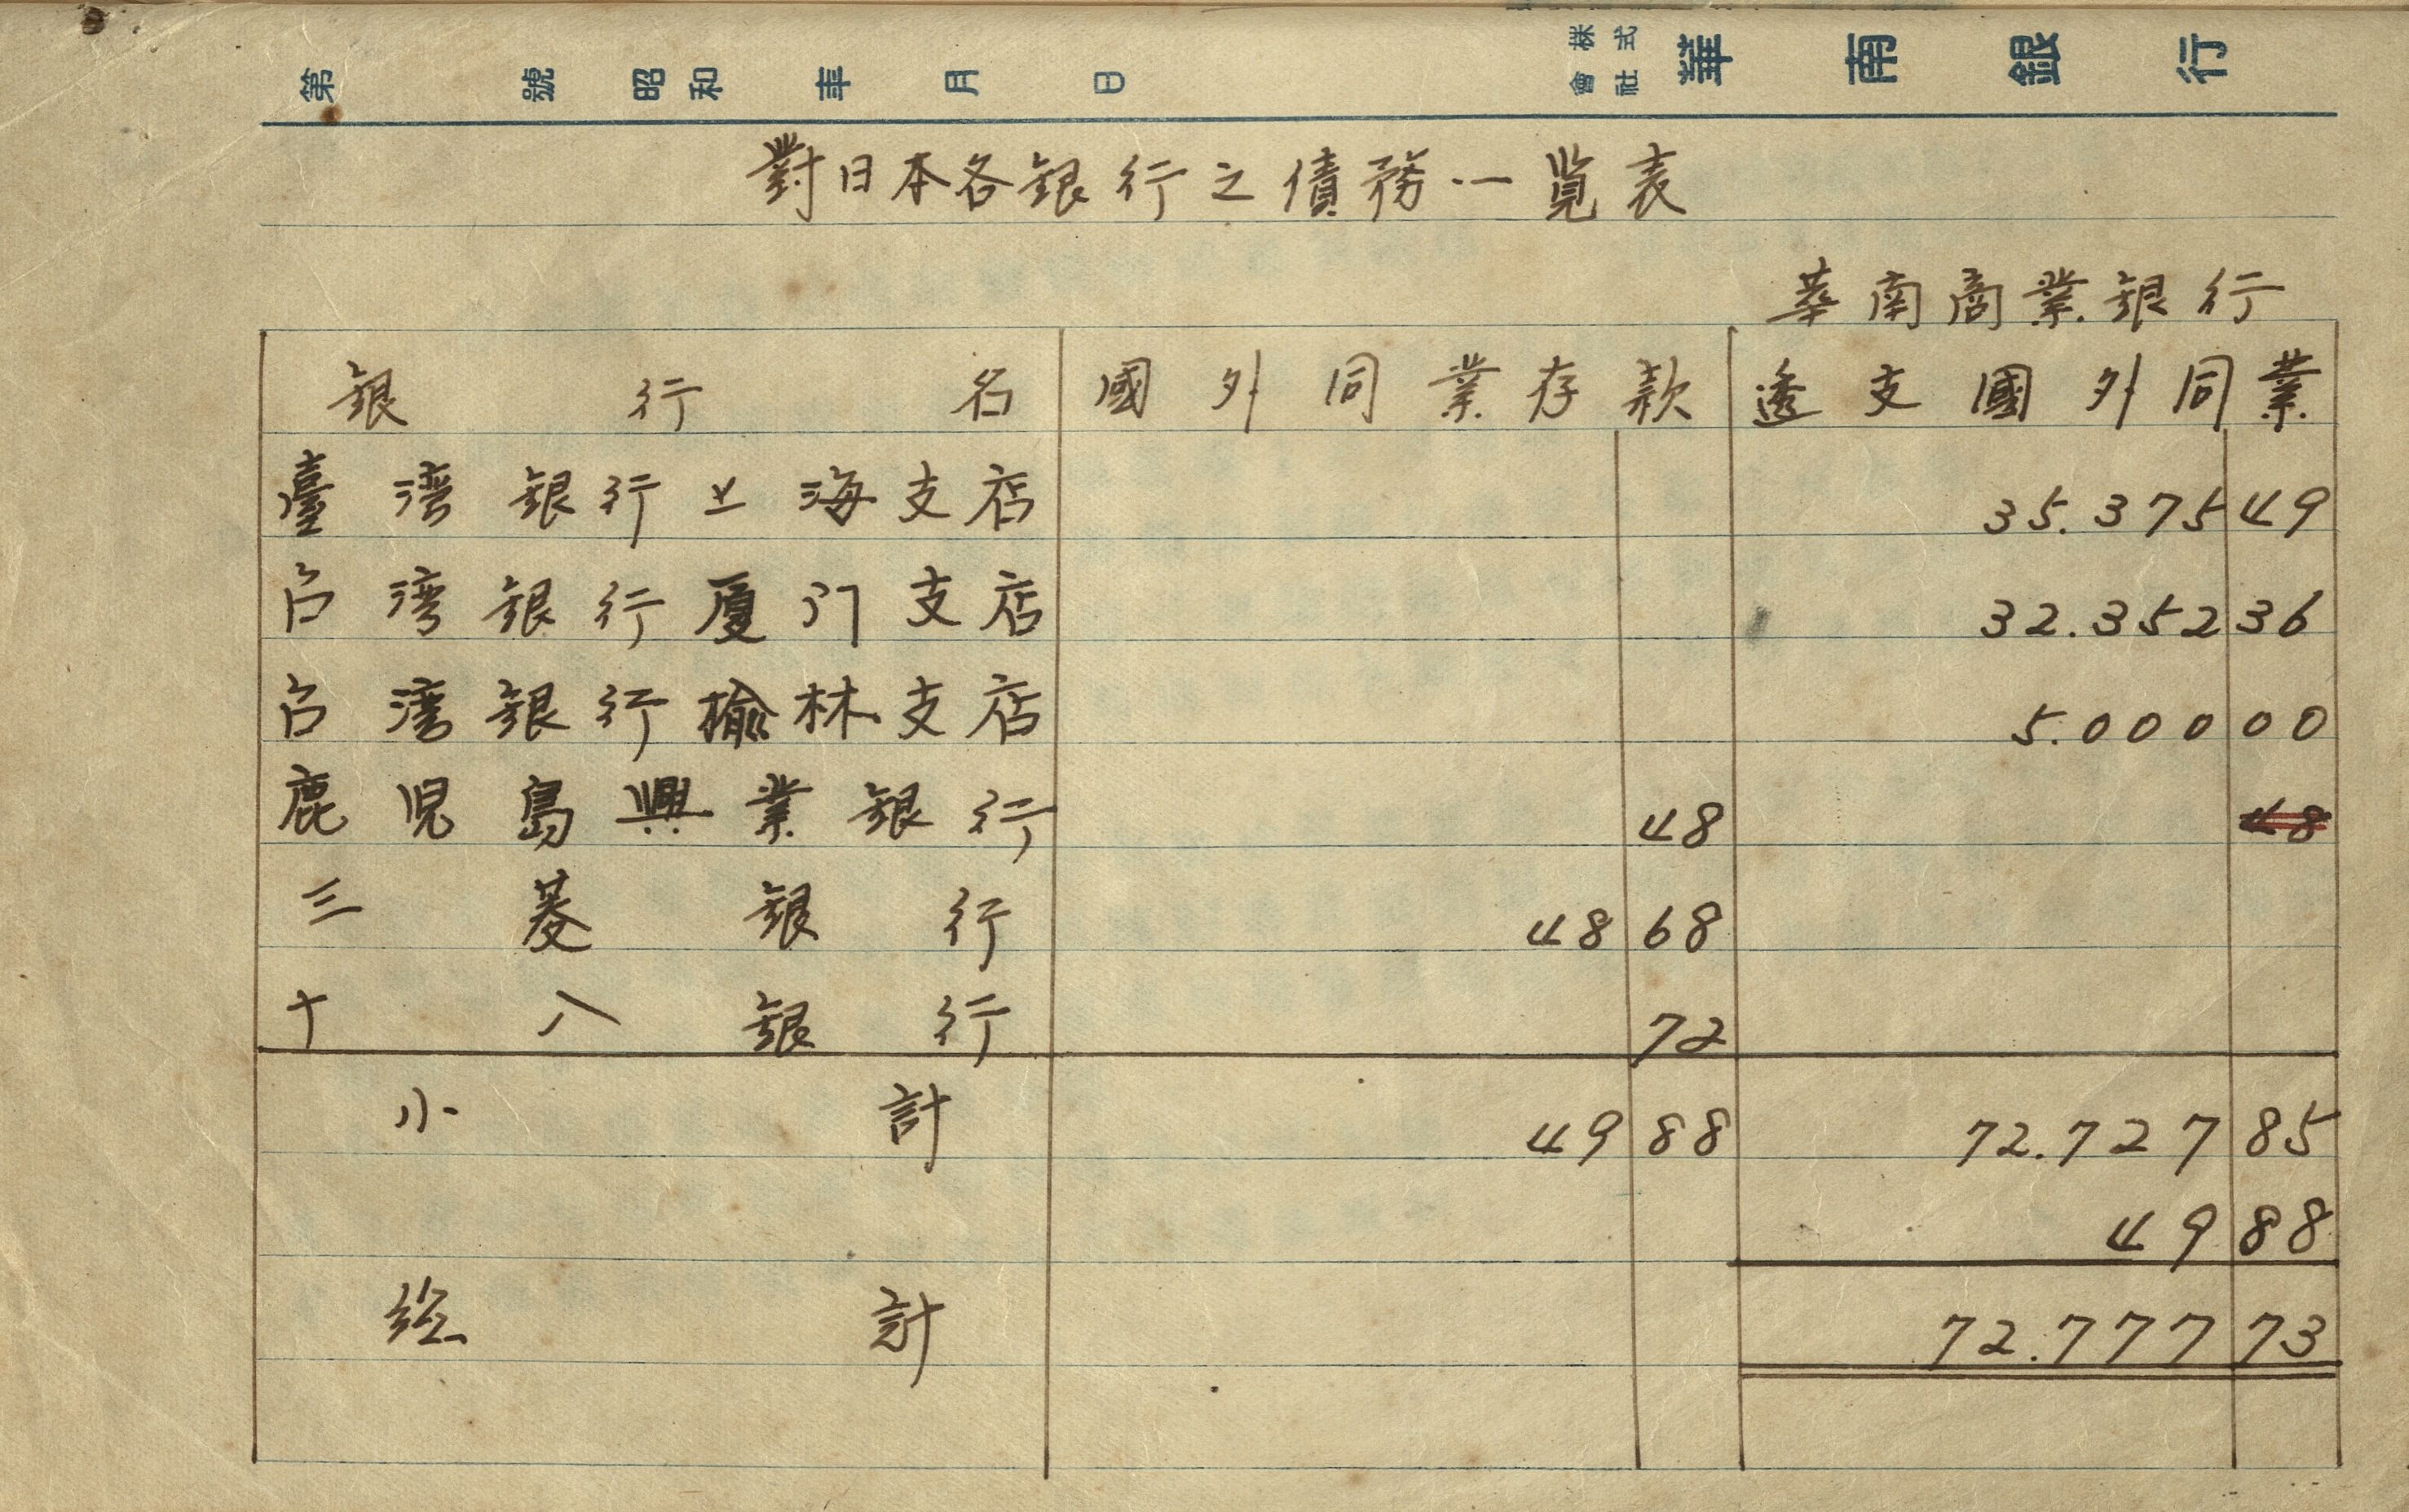 第 號 昭和 年 月 日 株式會社 華南銀行
對日本各銀行之債務一覧表
華南商業銀行
銀行名 國外同業存款 透支國外同業
臺湾銀行上海支店 35.375 49
台湾銀行厦门支店 32.352 36
台湾銀行榆林支店 5.000 00
鹿児島興業銀行 48 48
三菱銀行 48 68
十八銀行 72
小計 49 88 72.727 85
49 88
総計 72.777 73